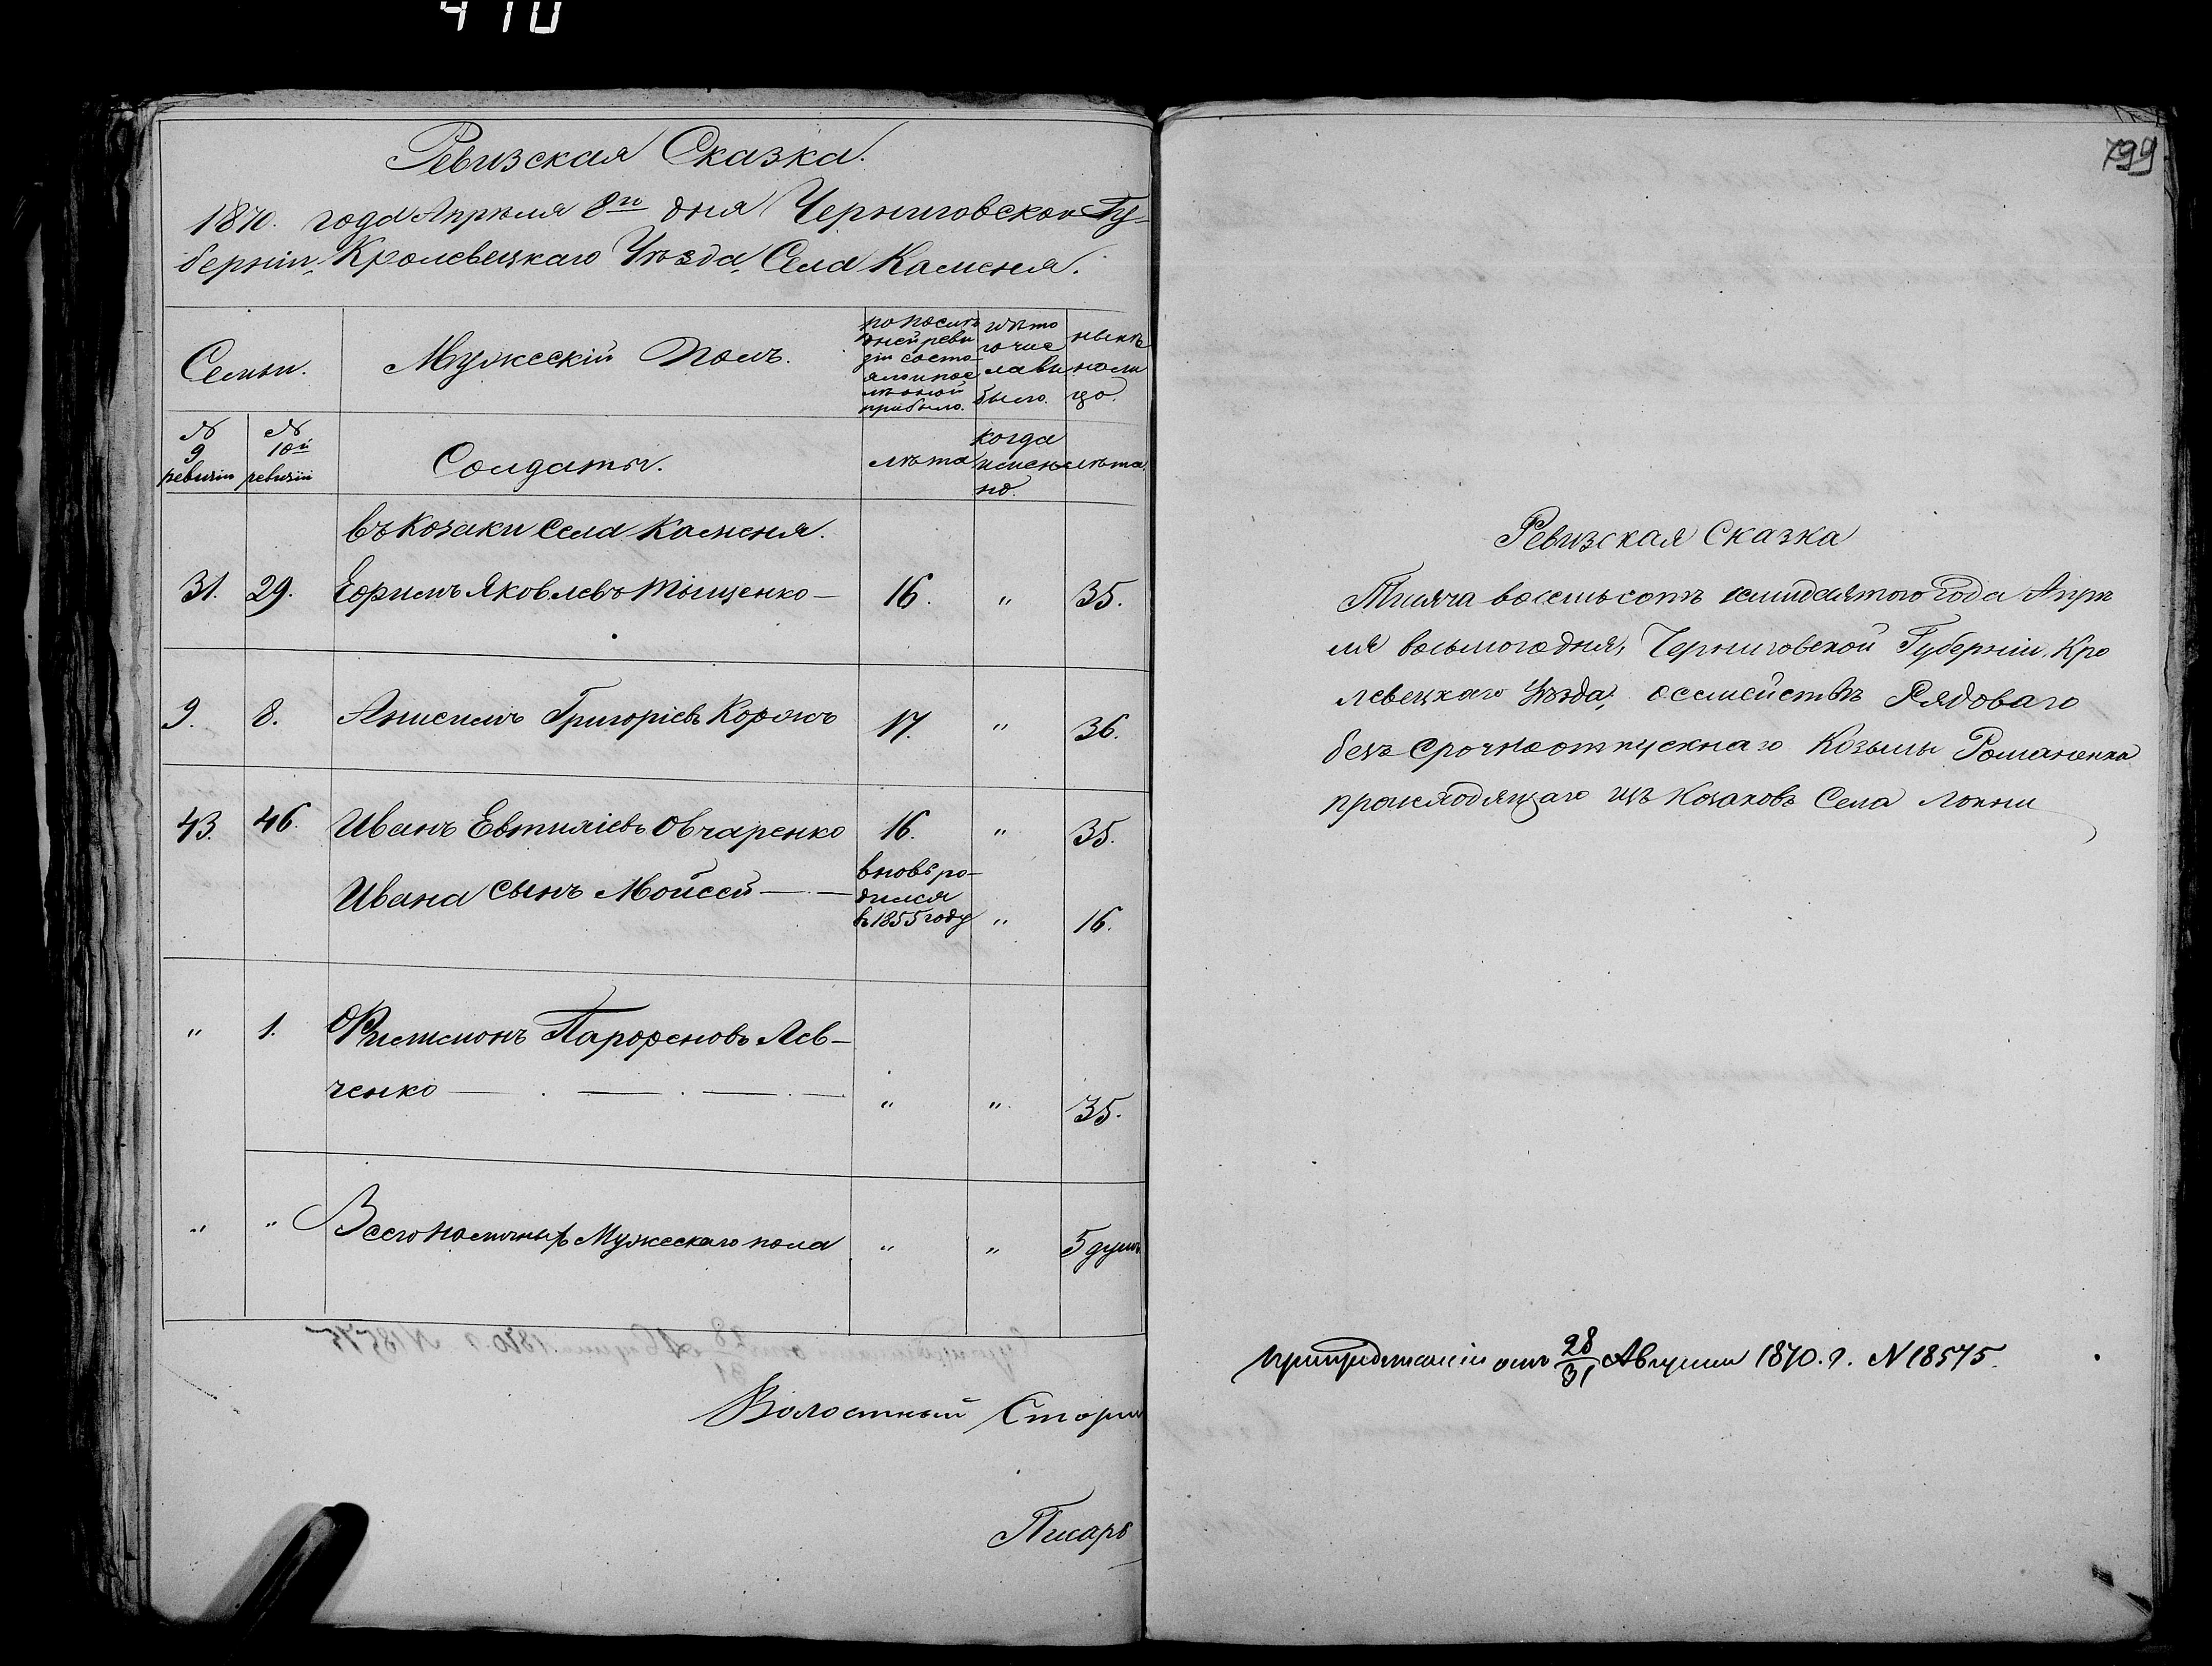 410
Ревизская Сказка.
1870. года Апреля 8го дня Черниговской Гу-
берніи, Кролевецкаго Уѣзда, Села Каменя.
Семьи.
Мужескій Полъ.
по послѣ
дней реви
зіи состо-
яло и пос
лѣ оной
прибыло.
изъ то
го чис
ла вы
было.
нынѣ
нали
цо.
№ 9 ревизіи
№ 10й ревизіи
Солдаты.
лѣта
когда
имен-
но.
лѣта.
въ Козаки Села Каменя.
31. 29. Ефимъ Яковлевъ Тищенко — 16. " 35.
9. 8. Анисимъ Григоріевъ Коржъ 17. " 36.
43. 46. Иванъ Евтихіевъ Овчаренко 16. " 35.
Ивана сынъ Мойсей — вновь ро-
дился
въ 1855 году " 16.
" 1. Филимонъ Парфеновъ Лев-
ченко — " " 35.
" " Всего наличныхъ Мужескаго пола " " 5 душъ
Волостный Старш
Писарь
799
Ревизская Сказка
Тысяча восемьсотъ семидесятого Года Апре
ля восьмого дня, Черниговской Губерніи, Кро
левецкаго Уѣзда, о семействѣ Рядоваго
безсрочноотпускнаго Козьмы Романенка
происходящаго изъ Козаковъ Села
отъ 28/31 Августа 1870. г. N 18575.